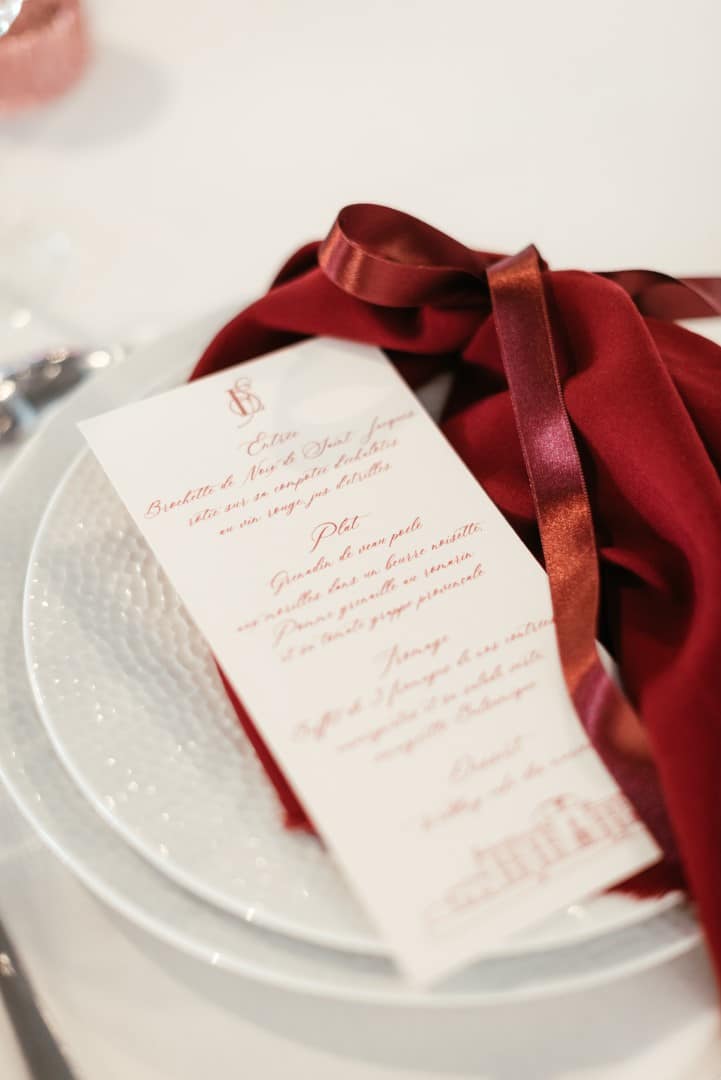 Entrée
Brochette de Noix de Saint Jacques
rôtie sur sa compotée d'échalotes
au vin rouge, jus d'étrilles
Plat
Grenadin de veau poêlé
aux morilles dans un beurre noisette,
Pomme grenaille au romarin
et sa tomate grappe provençale
Fromage
Buffet de 3 fromages de nos contrées
et sa salade verte,
vinaigrette Balsamique
Dessert